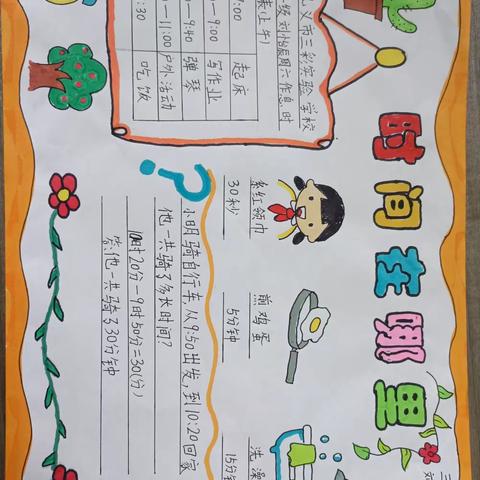 时间在哪里
义市三彩实验学校
级刘怡辰周六作息时
表(上午)
起床 7:00
写作业 -9:00
弹琴 -9:40
户外活动 -11:00
吃饭 :30
系红领巾
30秒
煎鸡蛋
5分钟
洗澡
15分钟
小明骑自行车,从9:50出发,到10:20回家
他一共骑了多长时间?
10时20分-9时50分=30(分)
答:他一共骑了30分钟